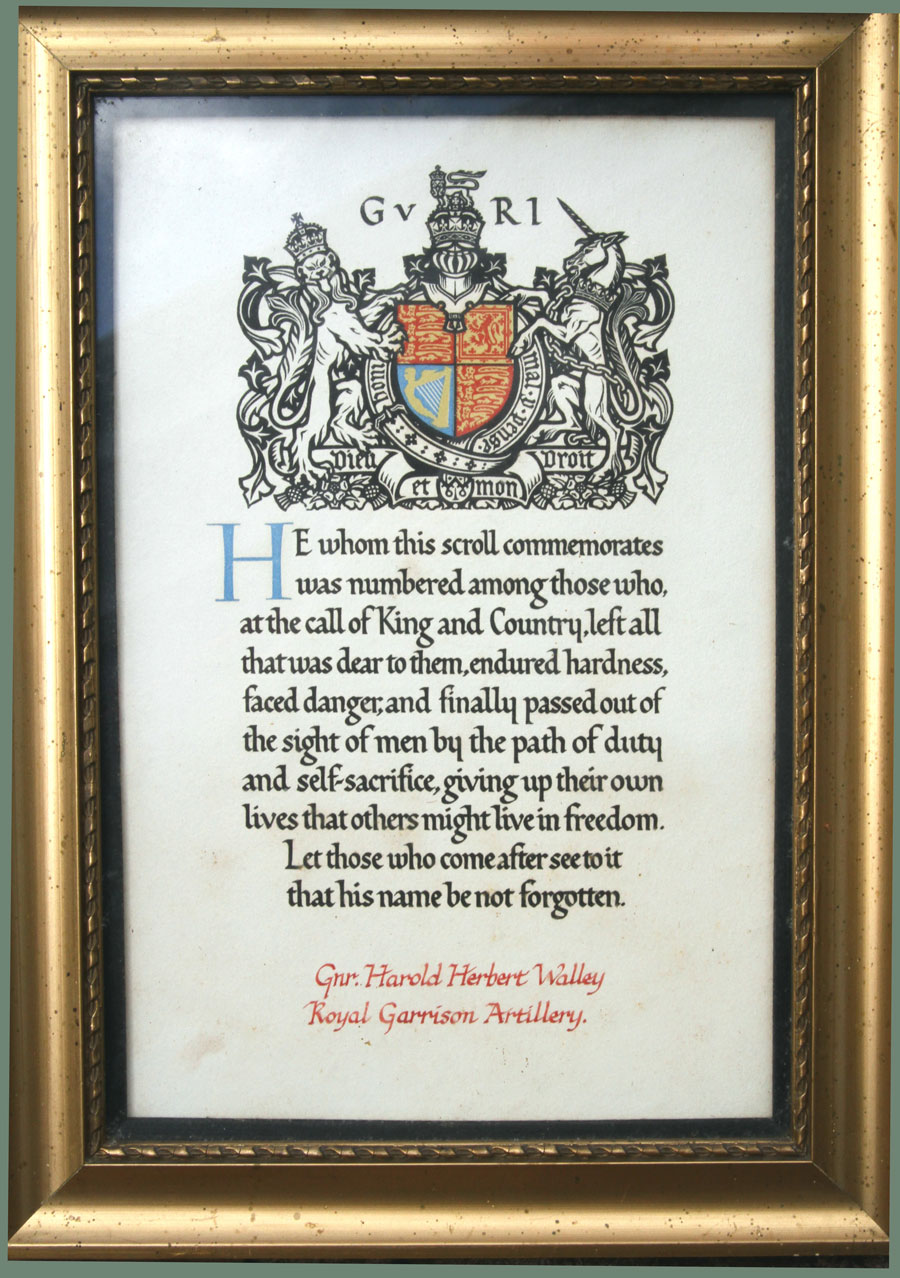 G V R I
Dieu Droit
et mon
HE whom this scroll commemorates
was numbered among those who,
at the call of King and Country, left all
that was dear to them, endured hardness,
faced danger, and finally passed out of
the sight of men by the path of duty
and self-sacrifice, giving up their own
lives that others might live in freedom.
Let those who come after see to it
that his name be not forgotten.
Gnr. Harold Herbert Walley
Royal Garrison Artillery.